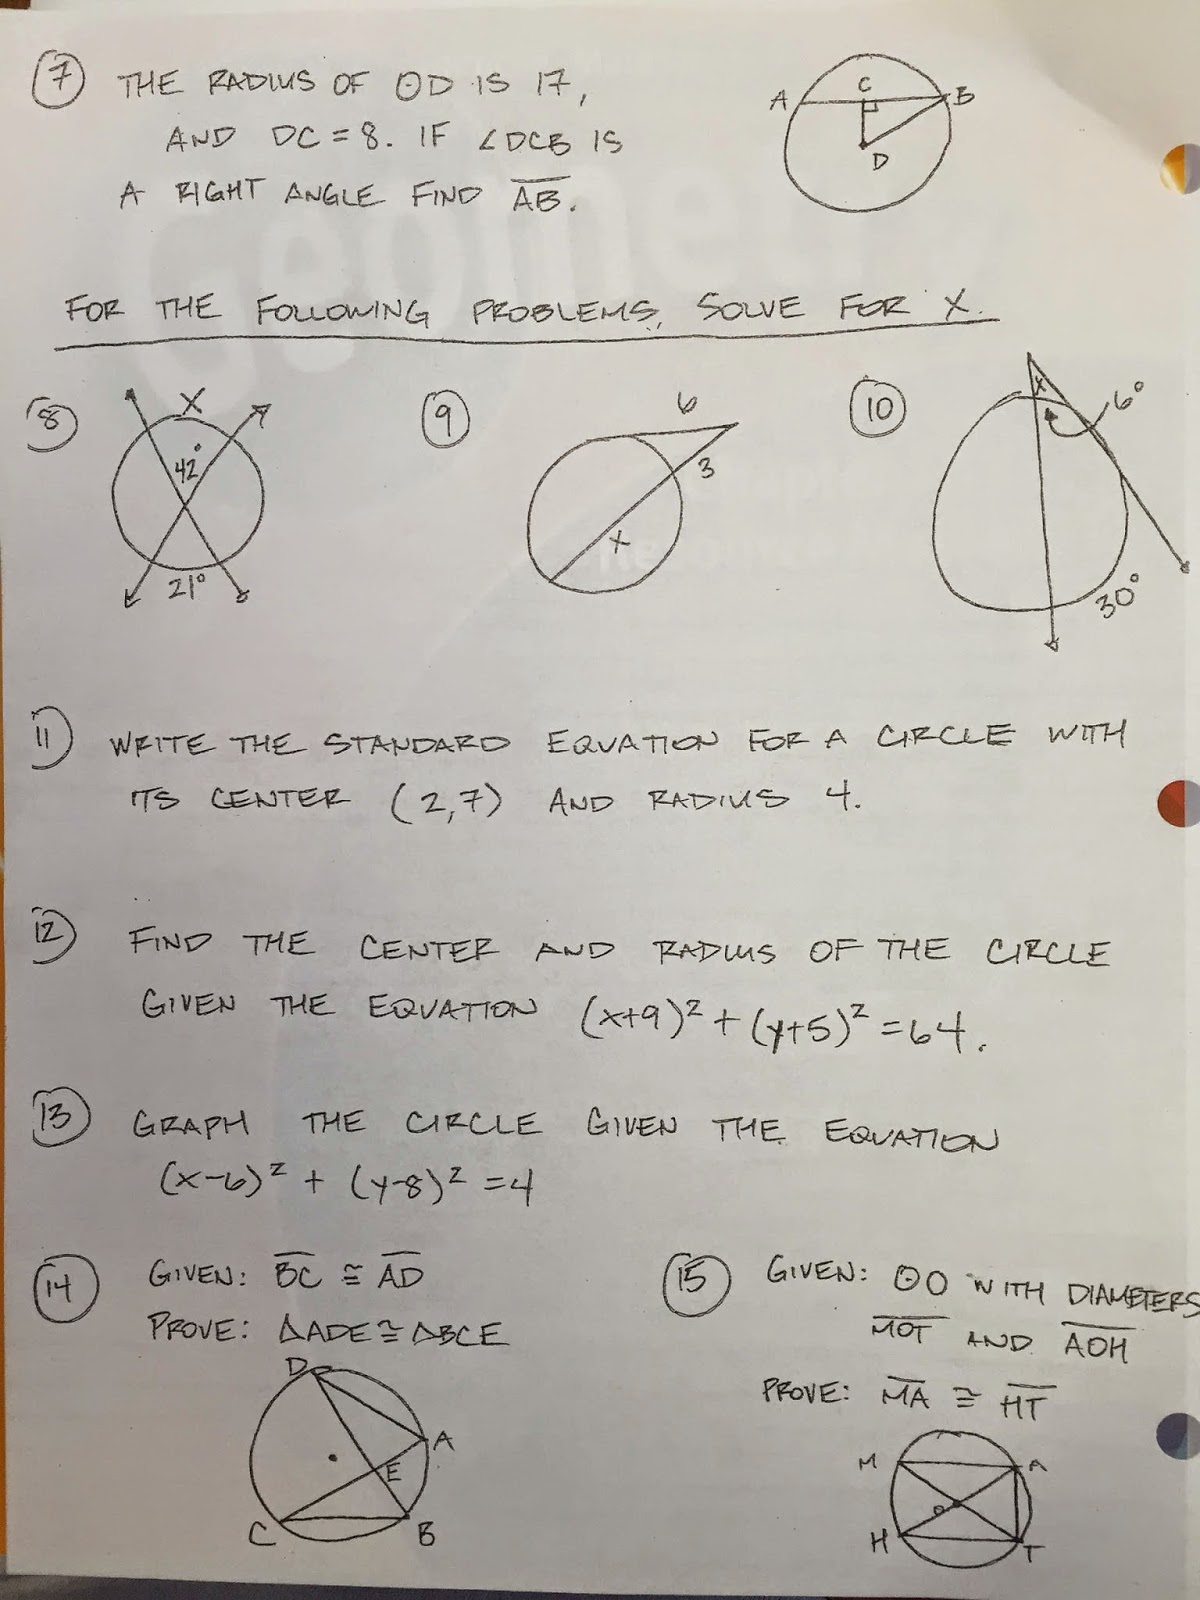 7 THE RADIUS OF ⊙D IS 17,
AND DC = 8. IF ∠DCB IS
A RIGHT ANGLE FIND A̅B̅.
A C B
D
FOR THE FOLLOWING PROBLEMS, SOLVE FOR X.
8 X
42°
21°
9 6
3
X
10 X 6°
30°
11) WRITE THE STANDARD EQUATION FOR A CIRCLE WITH
ITS CENTER (2,7) AND RADIUS 4.
12) FIND THE CENTER AND RADIUS OF THE CIRCLE
GIVEN THE EQUATION (x+9)² + (y+5)² = 64.
13 GRAPH THE CIRCLE GIVEN THE EQUATION
(x-6)² + (y-8)² = 4
14 GIVEN: B̅C̅ ≅ A̅D̅
PROVE: ΔADE ≅ ΔBCE
D
A
E
C B
15 GIVEN: ⊙O WITH DIAMETERS
M̅O̅T̅ AND A̅O̅H̅
PROVE: M̅A̅ ≅ H̅T̅
M A
O
H T
Geometry